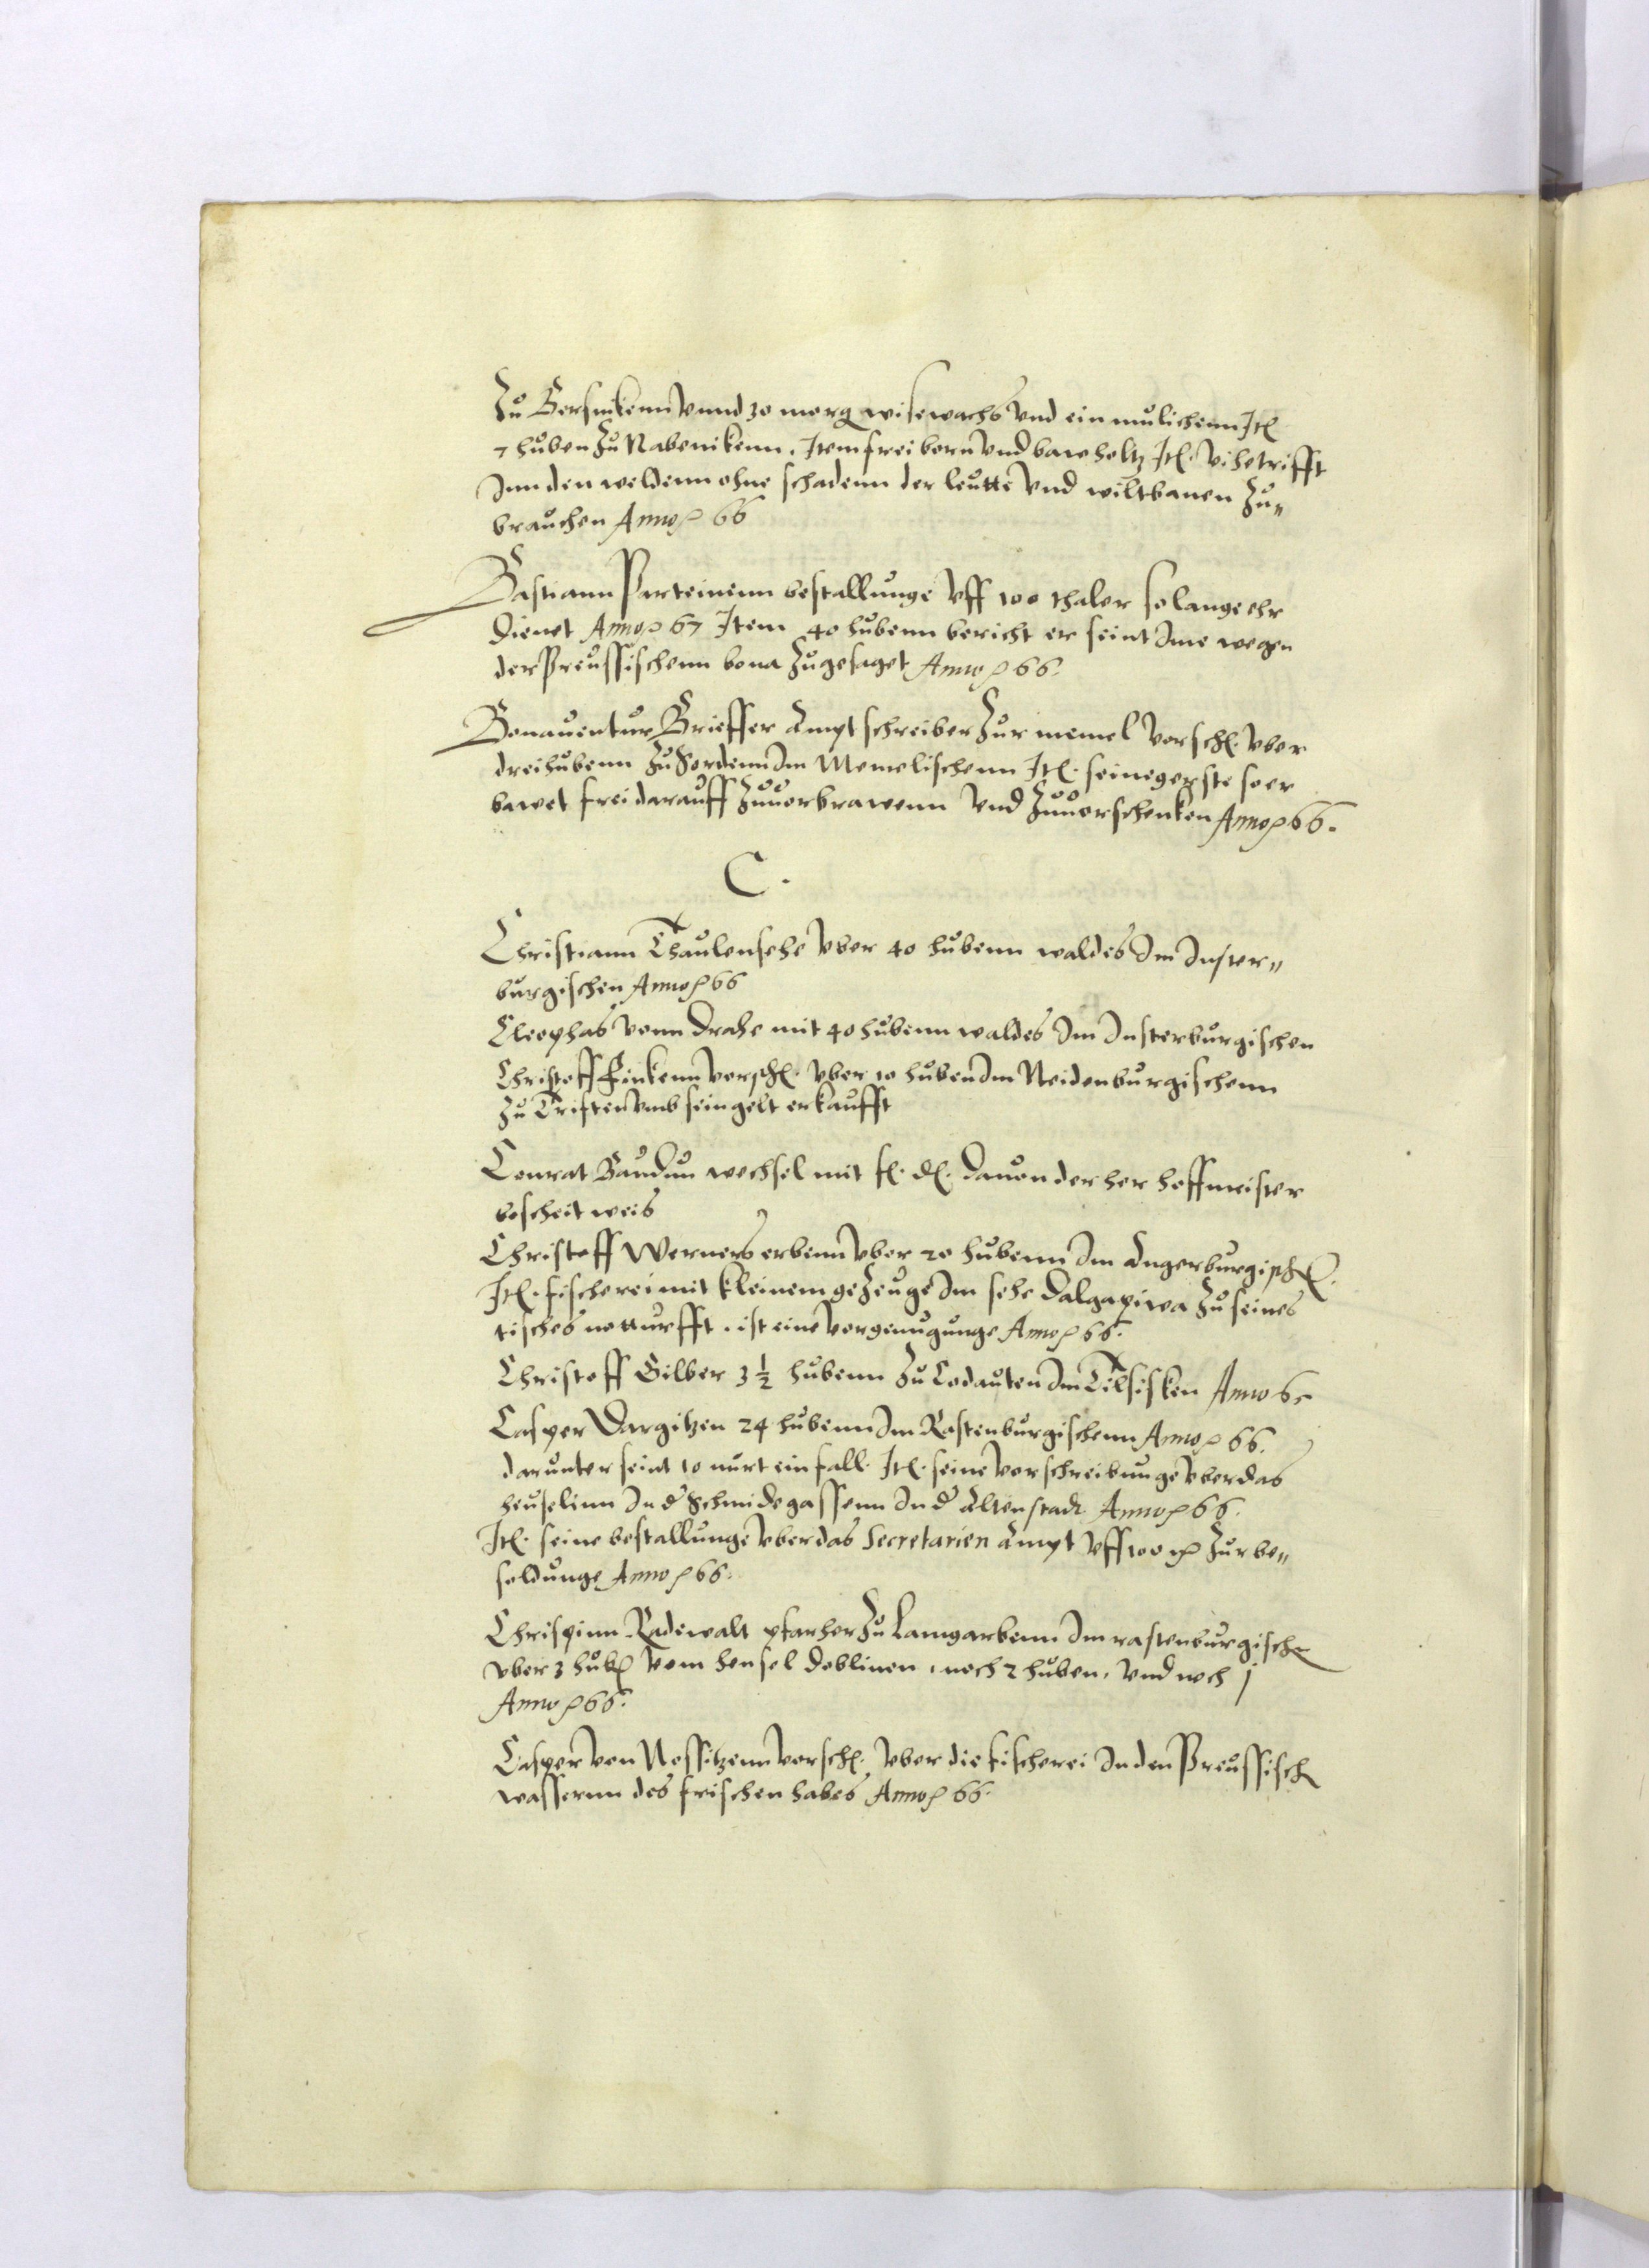 Zu Gersnikenn vnnd 30 morg wisewachs vnd ein mulichenn Jt.
7 huben zu Nabenikenn. Item frei born vnd bawholtz Jt. vihetrifft
Inn den weldenn ohne schadenn der leutte vnd wiltbanen zu„
brauchen Anno p 66
Bastiann Parteinenn bestallunge vff 100 thaler solange ehr
dienet Anno p 67 Item 40 hubenn bericht er seint Ime wegen
der Preussischenn bona zugesaget Anno p 66.
Bonauentur Brieffer Ampt schreiber zur memel vorsch. vber
drei hubenn zu Fordenn Im Memelischenn Jt. seine gerste so er
bawet frei darauff zuuorbrawenn vnd zuuorschenken Anno p 66.
C.
Christiann Thaulensehe vber 40 hubenn waldes Im Inster„
burgischen Anno p 66
Cleophas vonn Drahe mit 40 hubenn waldes Im Insterburgischen
Christoff Finkenn vorsch. vber 10 huben Im Neidenburgischenn
zu Triften vmb sein gelt erkaufft
Conrat Baudun wechsel mit f. d. dauon der her hoffmeister
bescheit weis
Christoff Werners erbenn vber 20 hubenn Im Angerburgisch.
Jt. fischerei mit kleinem gezeuge Im sehe Dalgapiwa zu seines
tisches notturfft. ist eine vorgenugunge Anno p 66.
Christoff Silber 3 ½ hubenn zu Codauten Im Tilsisken Anno 65
Casper Dargitzen 24 hubenn Im Rastenburgischenn Anno p 66.
darunter seint 10 nurt ein fall. Jt. seine vorschreibunge vber das
heuselinn In d' Schmidegassenn In d' Altenstadt Anno p 66.
Jt. seine bestallunge vber das Secretarien Ampt vff 100 mk zur be„
soldunge Anno p 66.
Chrispinn Radewalt pfarher zu Lamgarbenn Im rastenburgisch
vber 3 hub. vom hensel Doblinen, noch 2 huben, vnd noch j
Anno p 66.
Casper von Nossitzenn vorsch. vber die fischerei In den Preussisch
wassernn des frischen habes Anno p 66.